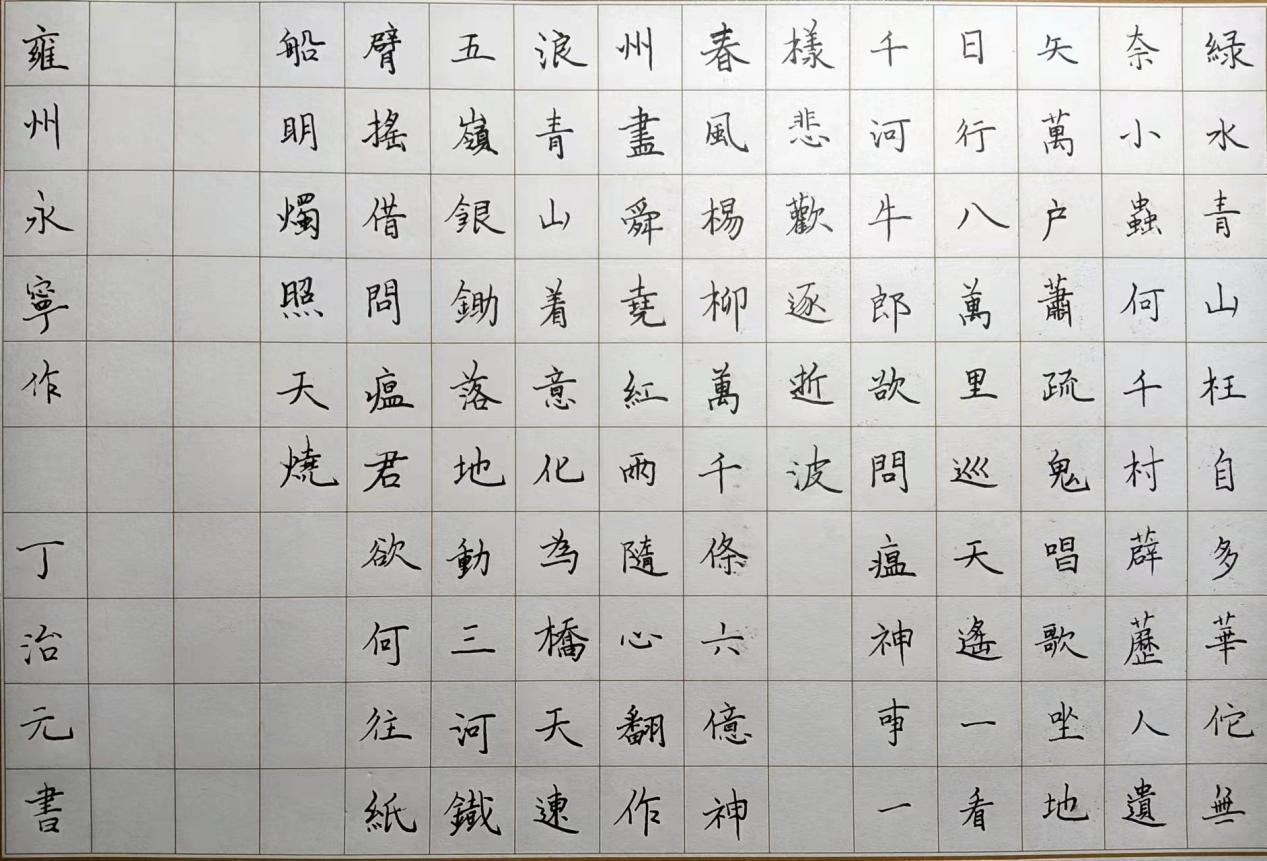 綠水青山枉自多華佗無
奈小蟲何千村薜藶人遺
矢萬户蕭疏鬼唱歌坐地
日行八萬里巡天遙一看
千河牛郎欲問瘟神事一
樣悲歡逐逝波
春風楊柳萬千條六億神
州盡舜堯紅兩隨心翻作
浪青山着意化為橋天連
五嶺銀鋤落地動三河鐵
臂搖借問瘟君欲何往紙
船明燭照天燒
雍州永寧作 丁治元書